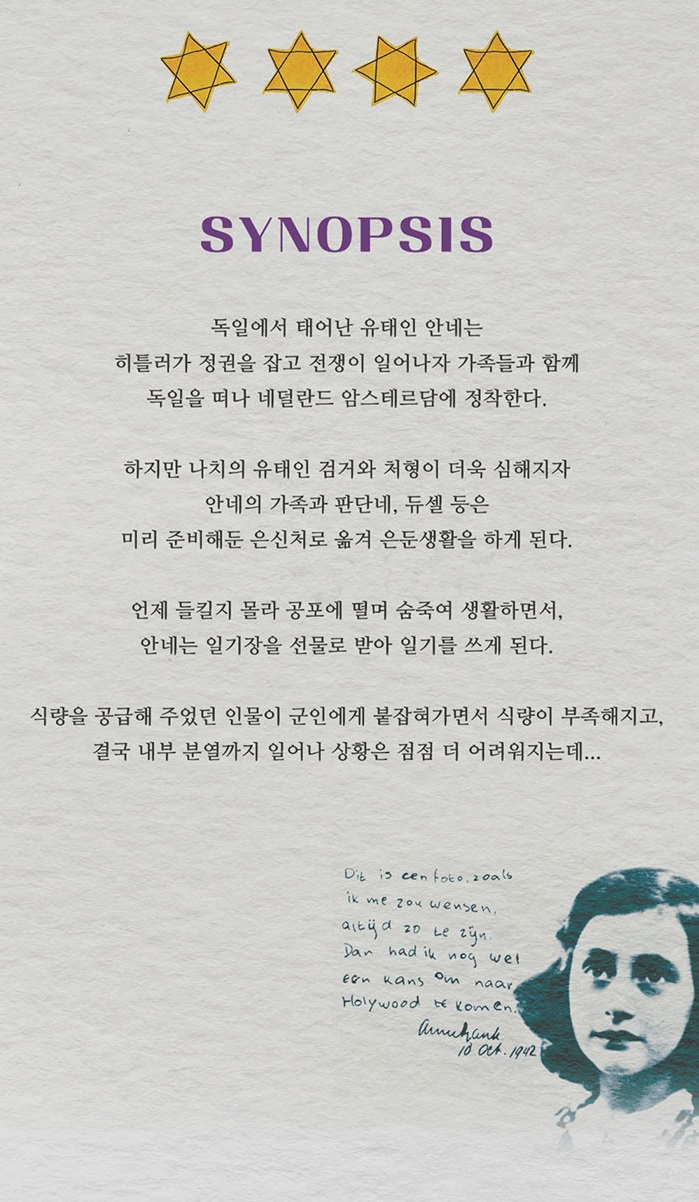 SYNOPSIS
독일에서 태어난 유태인 안네는
히틀러가 정권을 잡고 전쟁이 일어나자 가족들과 함께
독일을 떠나 네덜란드 암스테르담에 정착한다.
하지만 나치의 유태인 검거와 처형이 더욱 심해지자
안네의 가족과 판단네, 듀셀 등은
미리 준비해둔 은신처로 옮겨 은둔생활을 하게 된다.
언제 들킬지 몰라 공포에 떨며 숨죽여 생활하면서,
안네는 일기장을 선물로 받아 일기를 쓰게 된다.
식량을 공급해 주었던 인물이 군인에게 붙잡혀가면서 식량이 부족해지고,
결국 내부 분열까지 일어나 상황은 점점 더 어려워지는데...
Dit is een foto, zoals
ik me zou wensen,
altijd zo te zijn.
Dan had ik nog wel
een kans om naar
Holywood te komen.
Annefrank
10 Oct. 1942